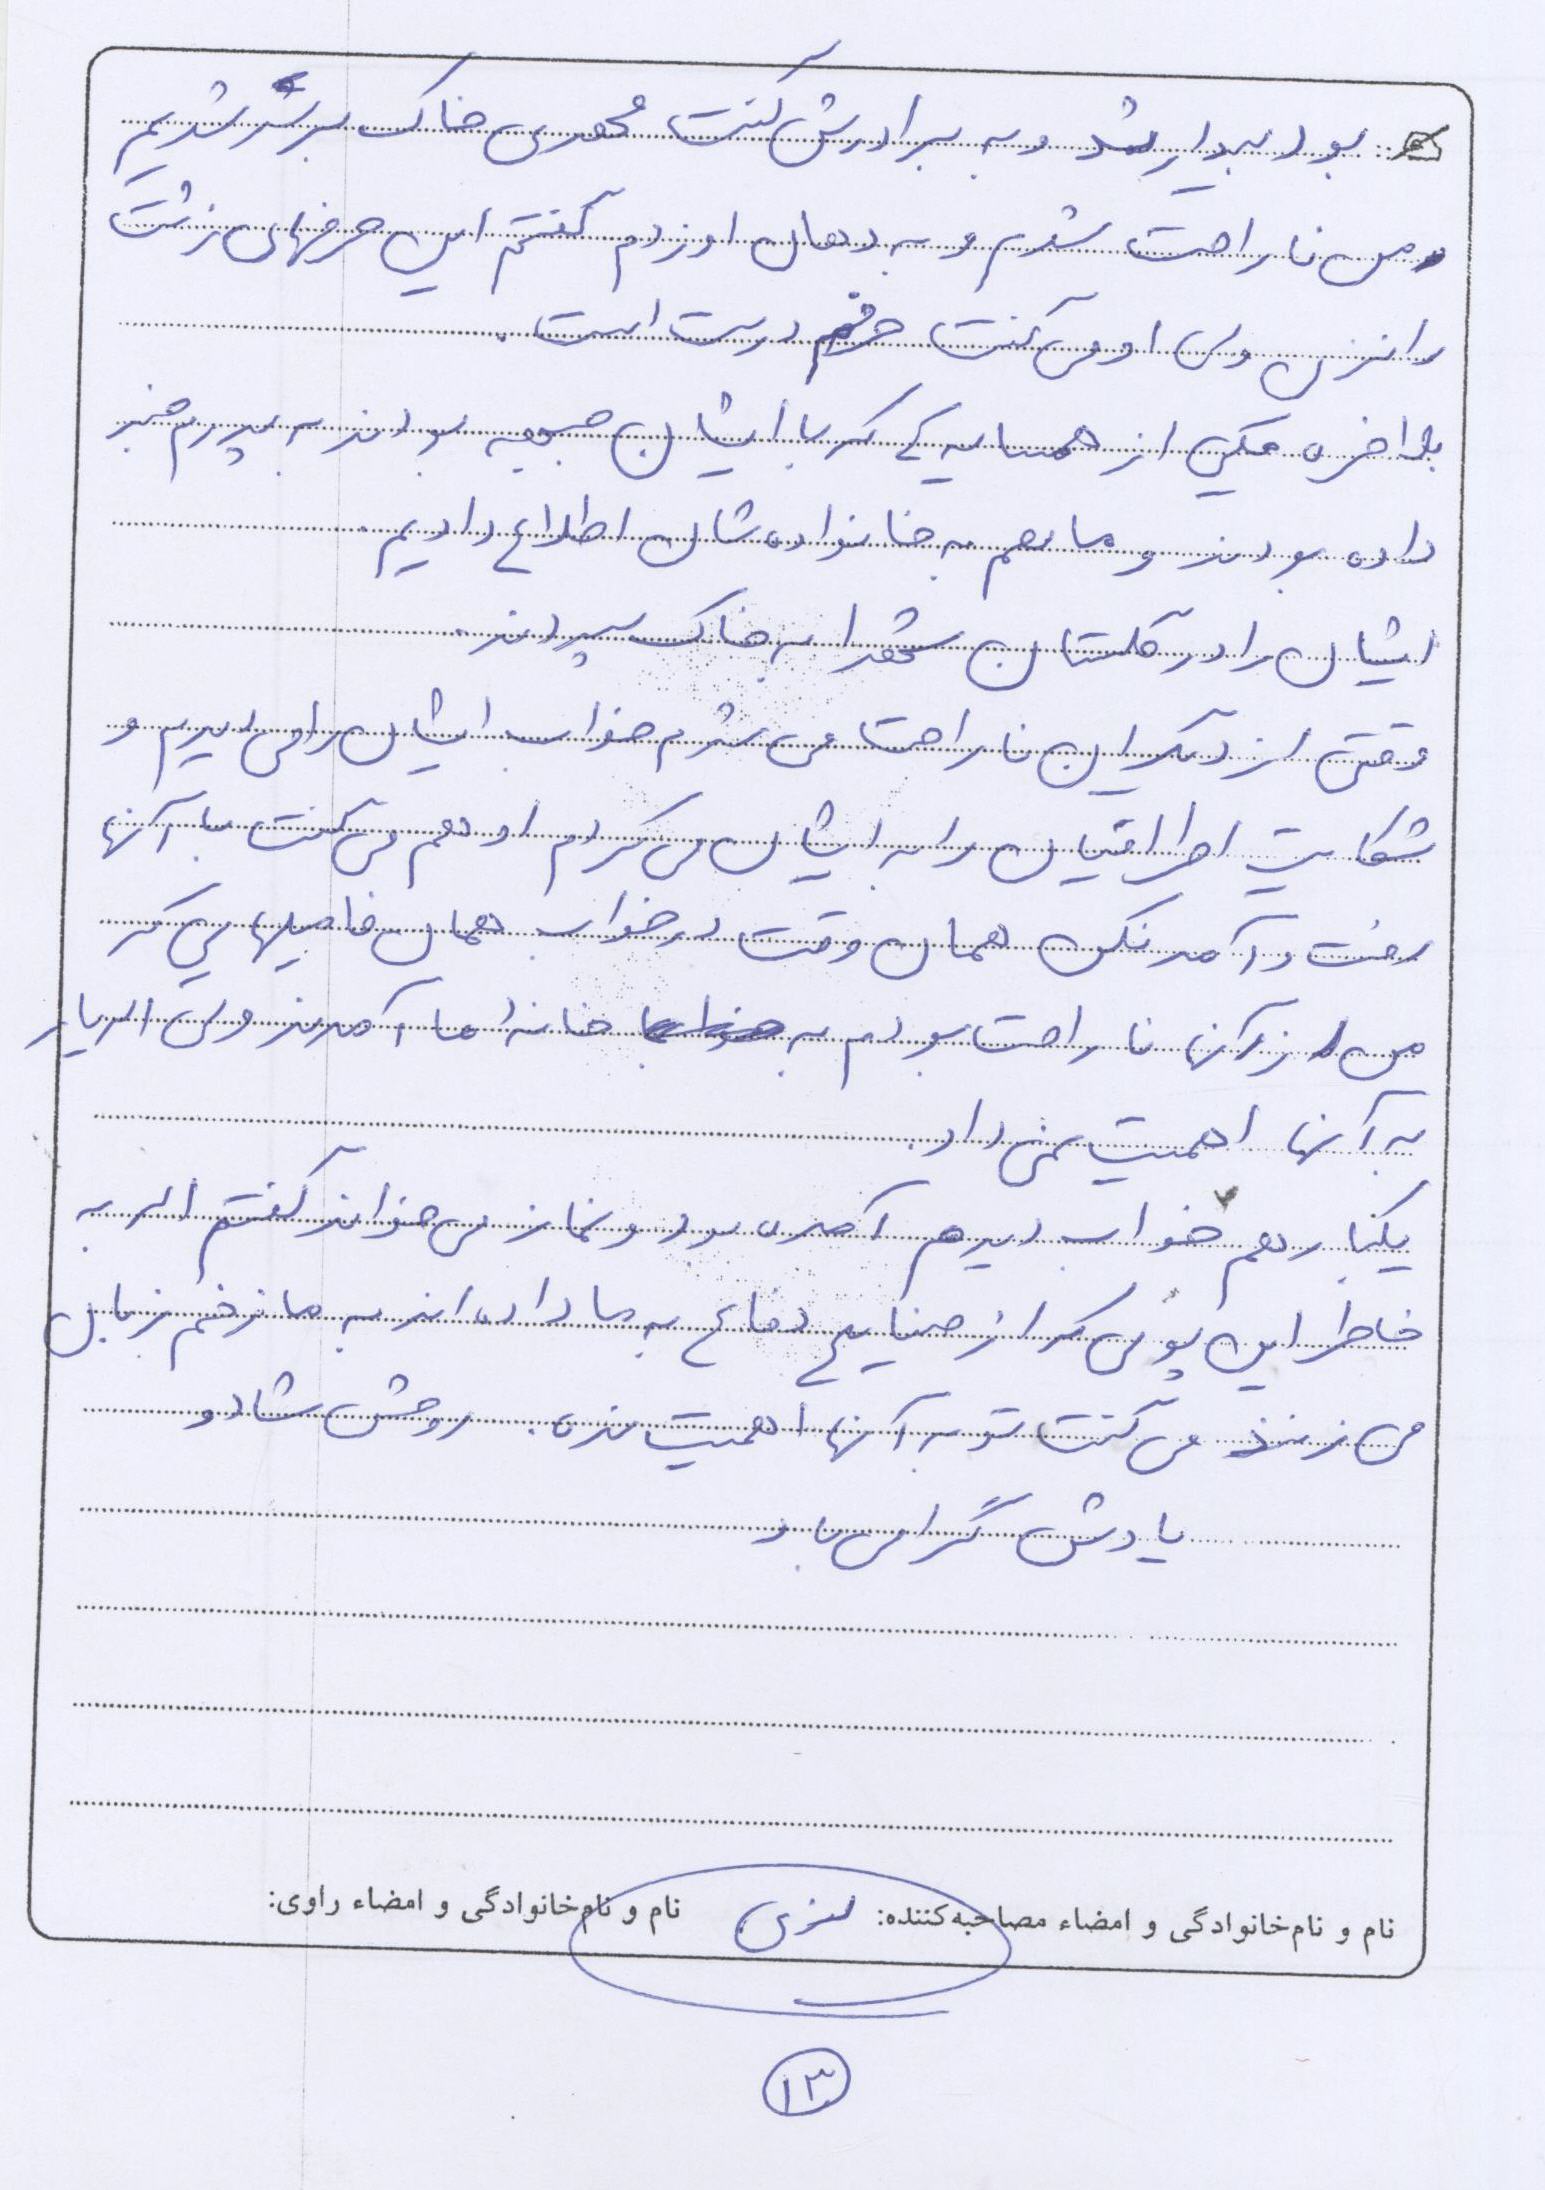 بود بیدار شد و به برادرش گفت مهدی خاک برسر شدیم
من ناراحت شدم و به دهان او زدم گفتم این حرفهای زشت
را نزن ولی او می گفت حرفم درست است.
بلاخره یکی از همسایه ی که با ایشان جبهه بودند به پدرم خبر
داده بودند و ما هم به خانواده شان اطلاع دادیم.
ایشان را در گلستان شهدا به خاک سپردند.
وقتی از دیگران ناراحت می شدم خواب ایشان را می دیدم و
شکایت اطرافیان را به ایشان می کردم او هم می گفت با آنها
رفت و آمد نکن همان وقت در خواب همان فامیلهایی که
من از آنها ناراحت بودم به خانه ما آمدند ولی الهیار
به آنها اهمیت نمی داد.
یکبار هم خواب دیدم آمده بود و نماز می خواند گفتم اله به
خاطر این پولی که از صنایع دفاع به ما داده اند به ما زخم زبان
می زنند می گفت تو به آنها اهمیت نده. روحش شاد و
یادش گرامی باد
نام و نام‌خانوادگی و امضاء مصاحبه‌کننده: نام و نام‌خانوادگی و امضاء راوی:
۱۳